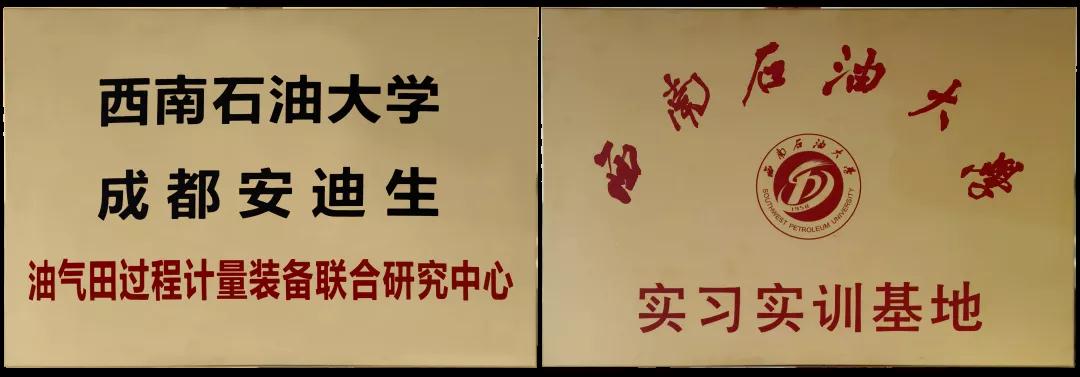 西南石油大学
成都安迪生
油气田过程计量装备联合研究中心
西南石油大学
西南石油大学
1958
SOUTHWEST PETROLEUM UNIVERSITY
实习实训基地